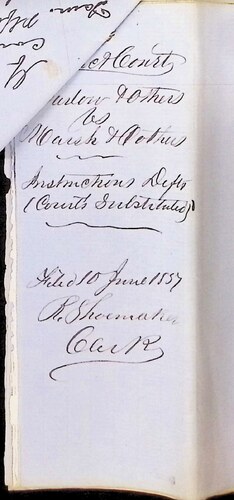 Court
& Others
vs
Marsh & Others
Instructions Defts
(Courts Substituted)
Filed 10 June 1857
R. Shoemaker
Clerk